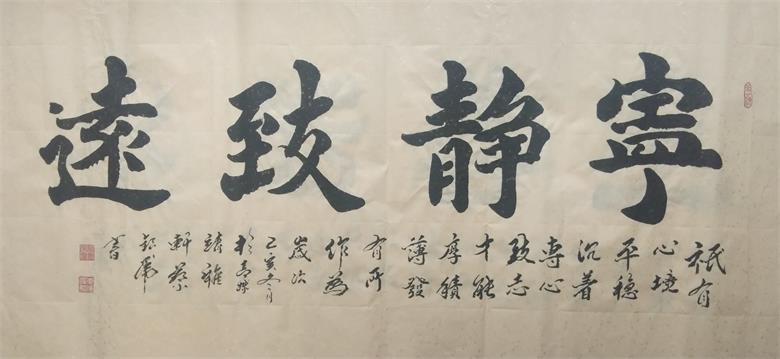 寧靜致遠
祇有
心境
平穩
沉着
專心
致志
才能
厚積
薄發
有所
作為
歲次
己亥冬月
於
靖雅
軒蔡
書